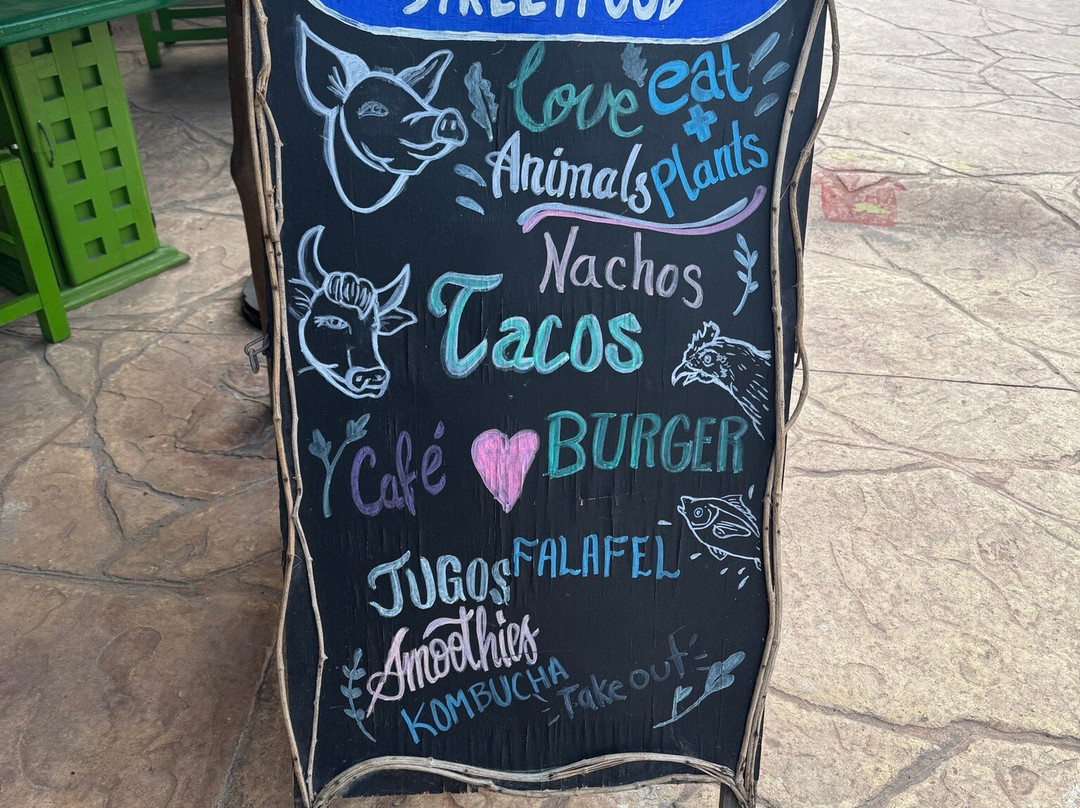 STREETFOOD
love eat
+
Animals plants
Nachos
Tacos
Café BURGER
FALAFEL
JUGOS
Smoothies
KOMBUCHA
Take out